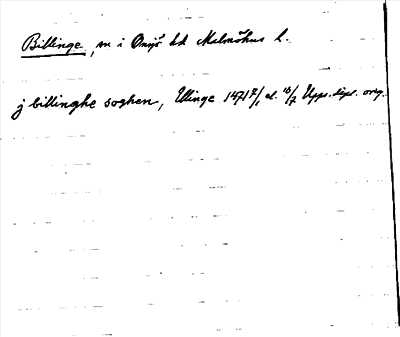 Billinge, sn i Onsjö hd Malmöhus l.
j billinghe soghen, Ellinge 1471 7/1 el. 13/7 Upps. dipl. orig.